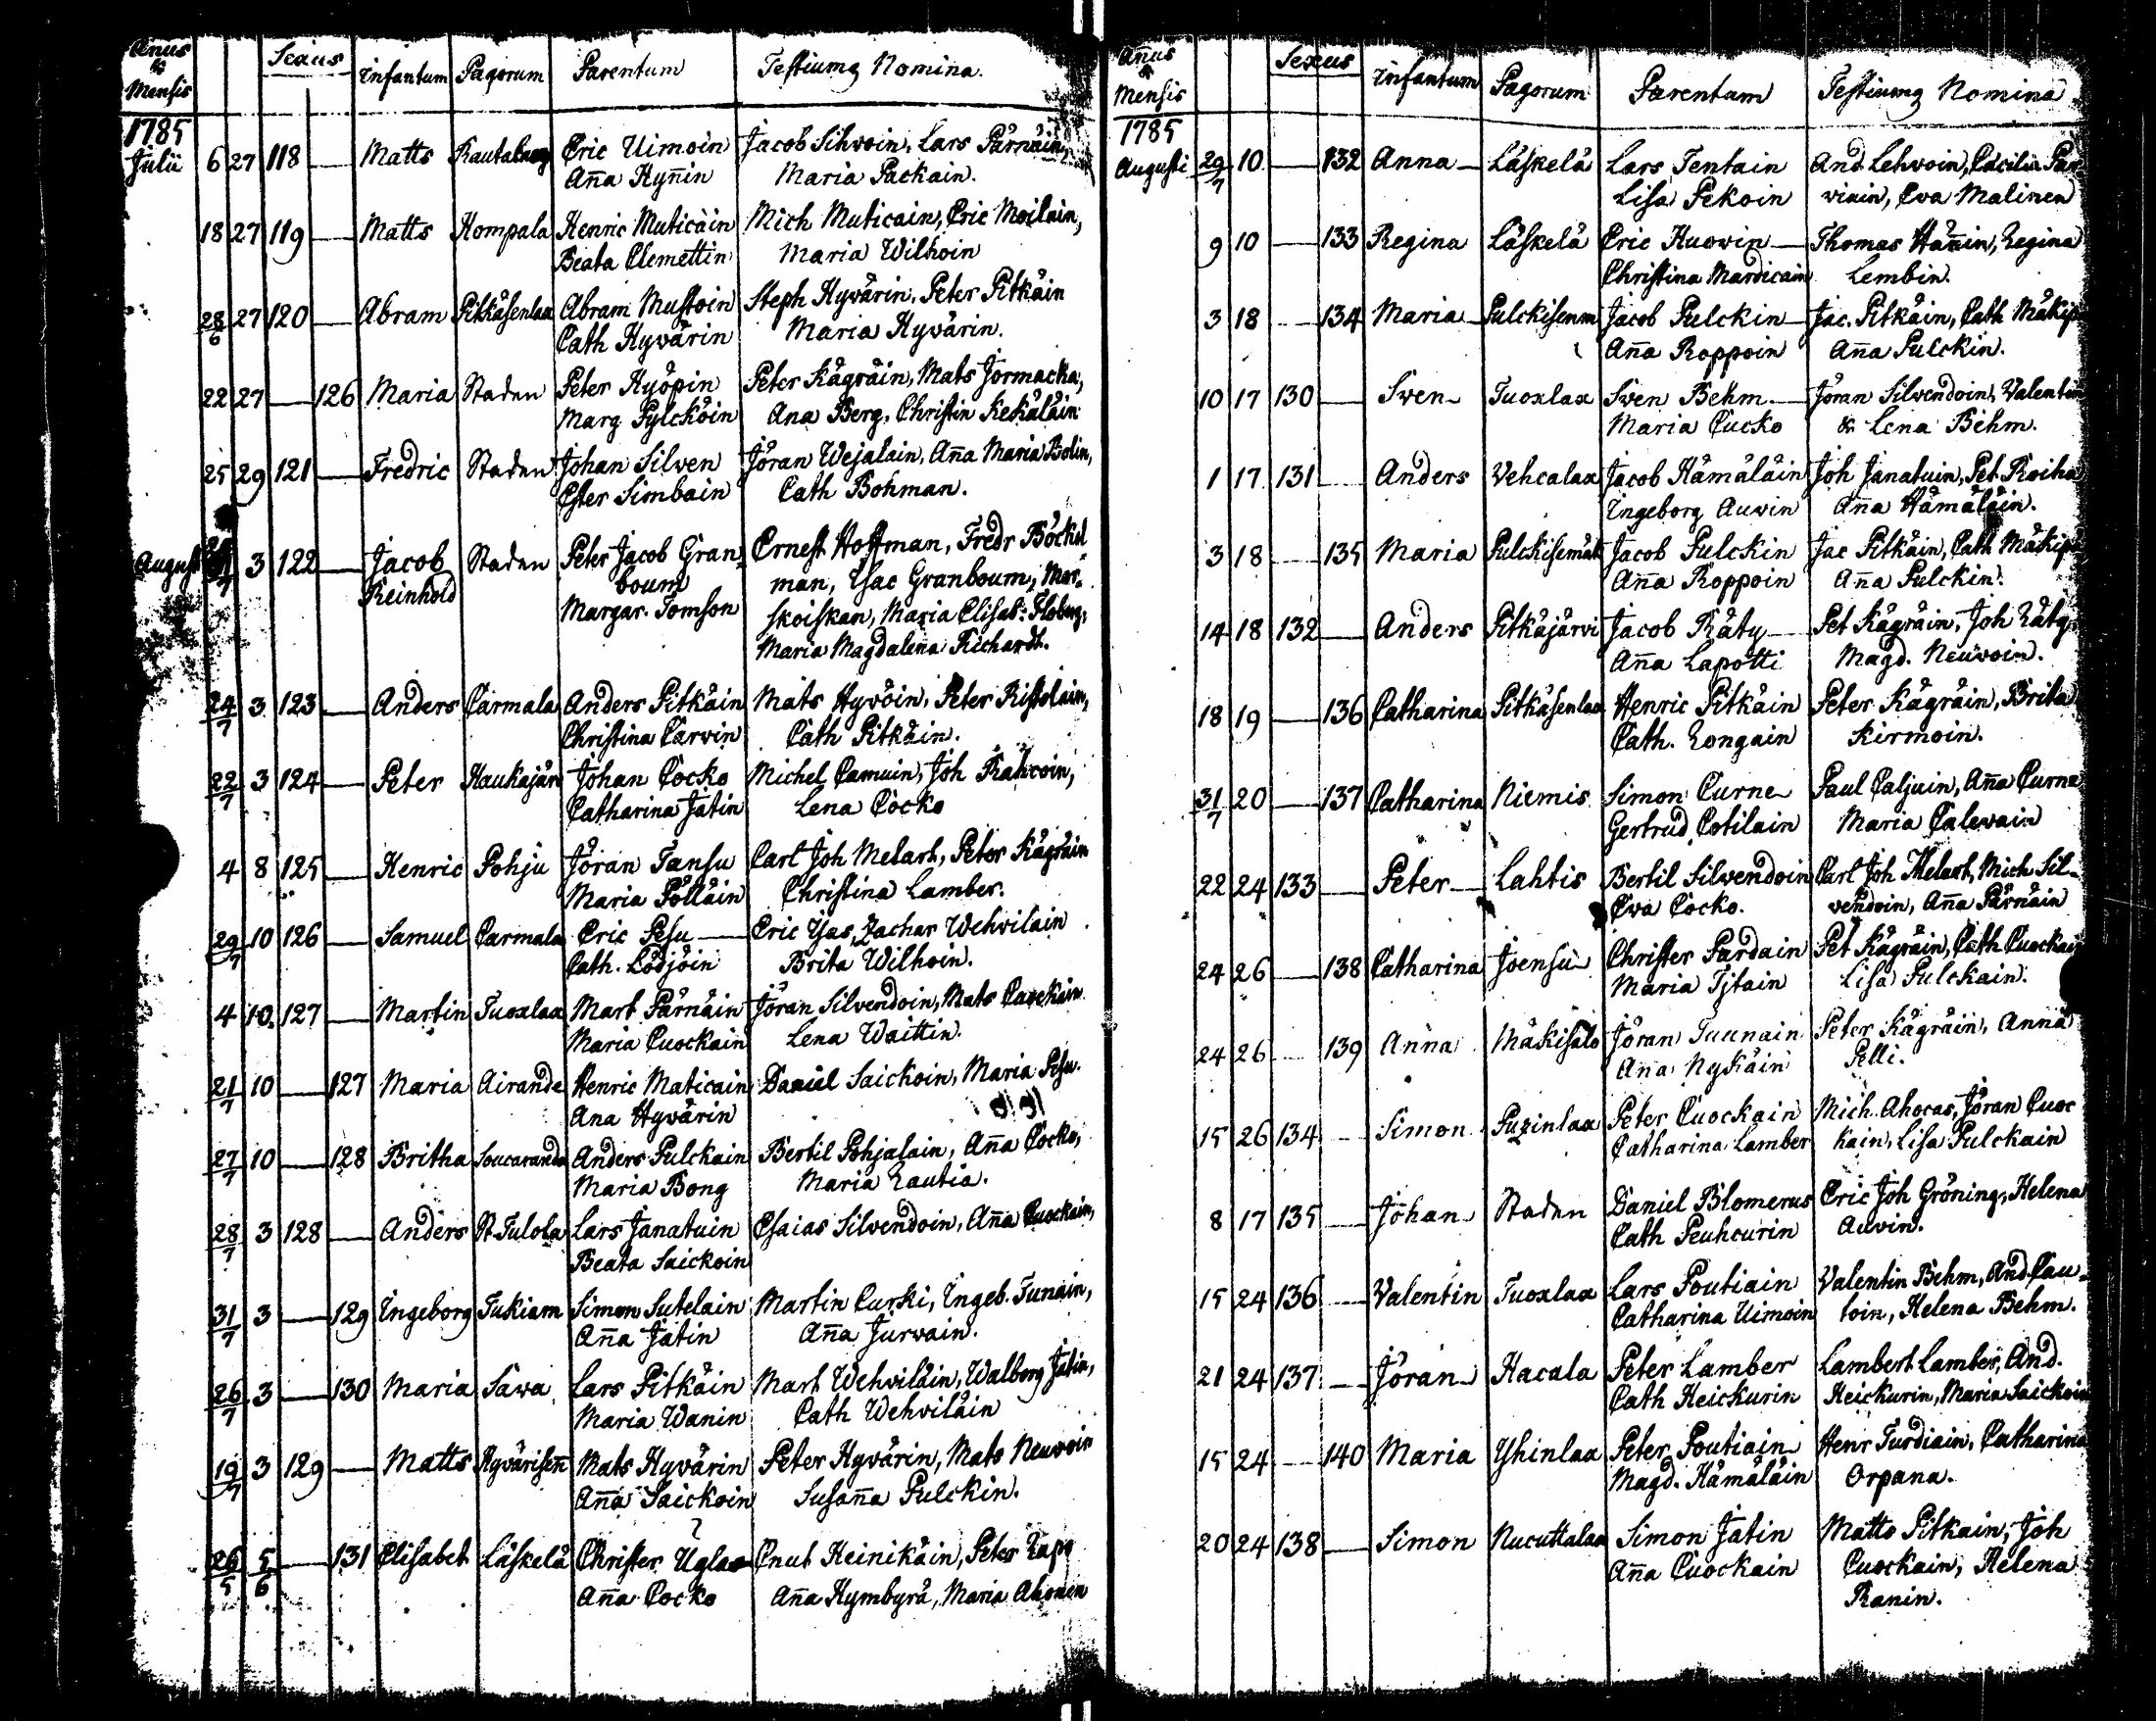 Anus & Mensis Sexus Infantum Pagorum Parentum Testiumq Nomina.
1785
Julii 6 27 118 — Matts Rautalacx Eric Uimoin Jacob Sihvoin, Lars Pärnäin,
Ana Hynin Maria Packain.
18 27 119 — Matts Hompala Henric Muticäin Mich Muticain, Eric Moilain,
Beata Clemettin Maria Wilhoin
28/6 27 120 — Abram Pitkäsenlax Abram Mustoin Steph Hyvärin, Peter Pitkäin
Cath Hyvärin Maria Hyvärin.
22 27 — 126 Maria Staden Peter Hyöpin Peter Kägräin, Mats Jormacka,
Marg Pylcköin Ana Berg, Christin Kekäläin
25 29 121 — Fredric Staden Johan Silven Jöran Wejalain, Ana Maria Bolin,
Ester Simbain Cath Bohman.
August 3 122 — Jacob Staden Peter Jacob Gran- Ernest Hoffman, Fredr Böckel
Reinhold boum man, Isac Granboum, Mar-
Margar. Tomson skoiskan, Maria Elisab: Floberg,
Maria Magdalena Richardt.
24/7 3 123 — Anders Carmala Anders Pitkäin Mats Hyvöin, Peter Ristolain,
Christina Carvin Cath Pitkäin.
22/7 3 124 — Peter Haukajärv Johan Cocko Michel Camuin, Joh Rahcoin,
Catharina Jatin Lena Cocko
4 8 125 — Henric Pohju Jöran Tansu Carl Joh Melart, Peter Kägräin
Maria Pölläin Christina Lamber.
29/7 10 126 — Samuel Carmala Eric Pesu — Eric Yas, Zachar Wehvilain
Cath. Lödjöin Brita Wilhoin.
4 10. 127 — Martin Tuoxlax Mart Pärnäin Jöran Silvendoin, Mats Carckain
Maria Cuockain Lena Waittin.
21/7 10 — 127 Maria Airanda Henric Maticain Daniel Saickoin, Maria Pesu.
Ana Hyvärin
27/7 10 — 128 Britha Soucaranda Anders Pulckain Bertil Pohjalain, Ana Cocko,
Maria Bong Maria Rautia.
28/7 3 128 — Anders St. Tulola Lars Janatuin Esaias Silvendoin, Ana Cuockain,
Beata Saickoin
31/7 3 — 129 Ingeborg Tukiam Simon Sutelain Martin Curki, Ingeb. Tunain,
Ana Jatin Ana Jurvain.
26/7 3 — 130 Maria Sawa Lars Pitkäin Mart Wehviläin, Walborg Jatin,
Maria Wanin Cath Wehviläin
19/7 3 129 — Matts Hyvärisen Mats Hyvärin Peter Hyvärin, Mats Neuvoin
Ana Saickoin Susana Pulckin.
26/5 5/6 — 131 Elisabet Läskelä Christer Uglas Cnut Heinikäin, Peter Rapp
Ana Cocko Ana Hymbyrä, Maria Ahonen
Anus & Mensis Sexus Infantum Pagorum Parentum Testiumq Nomina
1785
Augusti 29/7 10 — 132 Anna — Läskelä Lars Tentain And Lehvoin, Cäcilia Par
Lisa Pekoin viain, Eva Malinen
9 10 — 133 Regina Läskelä Eric Huovin — Thomas Hänin, Regina
Christina Mardicain Lembin.
3 18 — 134 Maria Pulckisenm Jacob Pulckin — Jac. Pitkäin, Cath Mäkip
Ana Roppoin Ana Pulckin.
10 17 130 — Sven Tuoxlax Sven Behm — Jöran Silvendoin, Valentin
Maria Cucko & Lena Behm.
1 17 131 — Anders Vehcalax Jacob Hämäläin Joh Janatuin, Pet Roiha
Ingeborg Auvin Ana Hämäläin.
3 18 — 135 Maria Pulckisemäk Jacob Pulckin Jac Pitkäin, Cath Mäkip
Ana Roppoin Ana Pulckin.
14 18 132 — Anders Pitkäjärvi Jacob Räty — Pet Kägräin, Joh Räty,
Ana Lapotti Magd. Neuvoin.
18 19 — 136 Catharina Pitkäsenlax Henric Pitkäin Peter Kägräin, Brita
Cath. Rongain Kirmoin.
31/7 20 — 137 Catharina Niemis Simon Curne Paul Caljuin, Ana Curne
Gertrud Cotilain Maria Calevain
22 24 133 — Peter — Lahtis Bertil Silvendoin Carl Joh Melart, Mich Sil-
Eva Cocko. vendoin, Ana Pärnäin
24 26 — 138 Catharina Joensu Christer Pardain Pet Kägräin, Cath Cuockain
Maria Tjtain Lisa Pulckain.
24 26 — 139 Anna Mäkisalo Jöran Tuunain Peter Kägräin, Anna
Ana Nykäin Pelli.
15 26 134 — Simon Puzinlax Peter Cuockain Mich. Ahocas, Jöran Cuoc
Catharina Lamber kain, Lisa Pulckain
8 17 135 — Johan Staden Daniel Blomerus Eric Joh Gröning, Helena
Cath Peuhcurin Auvin.
15 24 136 — Valentin Tuoxlax Lars Poutiain Valentin Behm, And. Cau-
Catharina Uimoin toin, Helena Behm.
21 24 137 — Jöran Hacala Peter Lamber Lambert Lamber, And.
Cath Heickurin Heickurin, Maria Saickoin
15 24 — 140 Maria Yhinlax Peter Poutiain Henr Turdiain, Catharina
Magd. Hämäläin Orpana.
20 24 138 — Simon Nucuttalax Simon Jatin Matts Pitkain, Joh
Ana Cuockain Cuockain, Helena
Ranin.